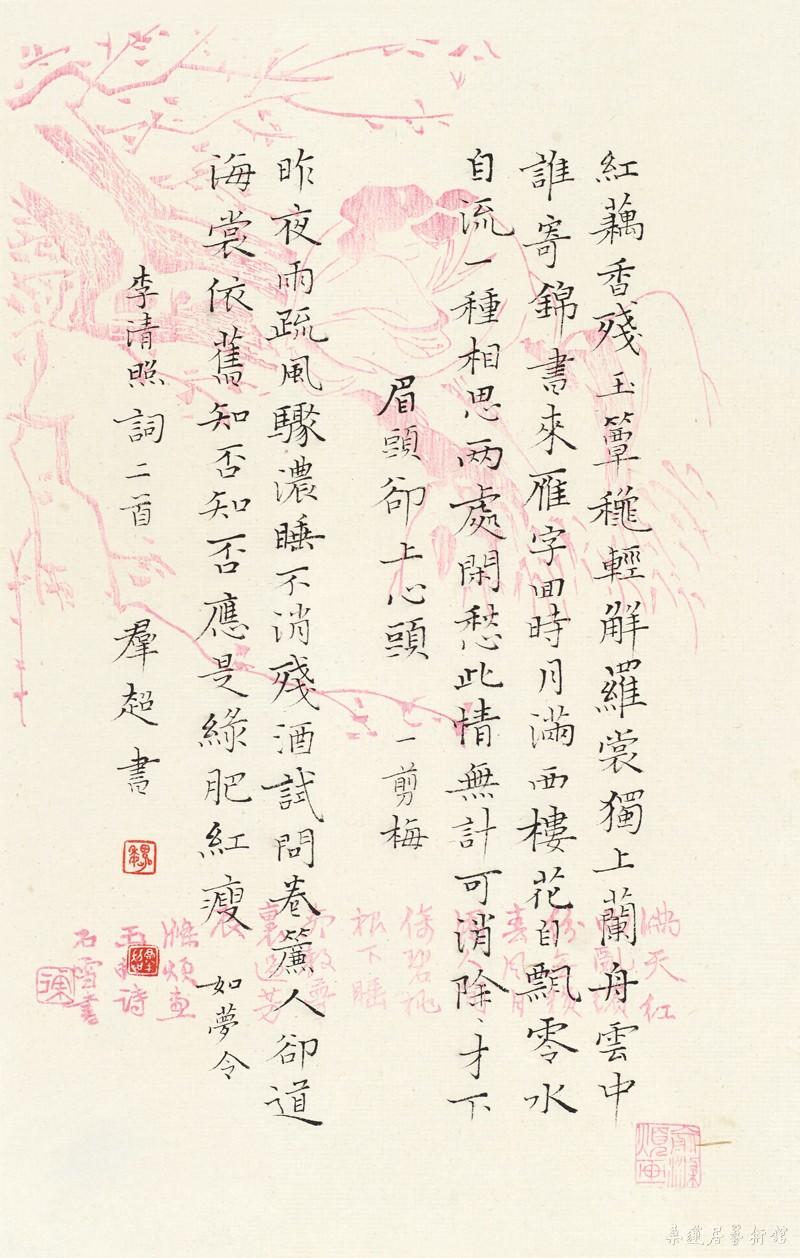 紅藕香殘玉簟穐輕解羅裳獨上蘭舟雲中
誰寄錦書來雁字回時月滿西樓花自飄零水
自流一種相思兩處閑愁此情無計可消除〻才下
眉頭卻上心頭 一剪梅
昨夜雨疏風驟濃睡不消殘酒試問卷簾人卻道
海裳依舊知否知否應是綠肥紅瘦 如夢令
李清照詞二首 羣超書
滿天紅
倚碧桃
松下睡
滌煩畫
石雪書
俞滌煩画
桑蓮居藝術館